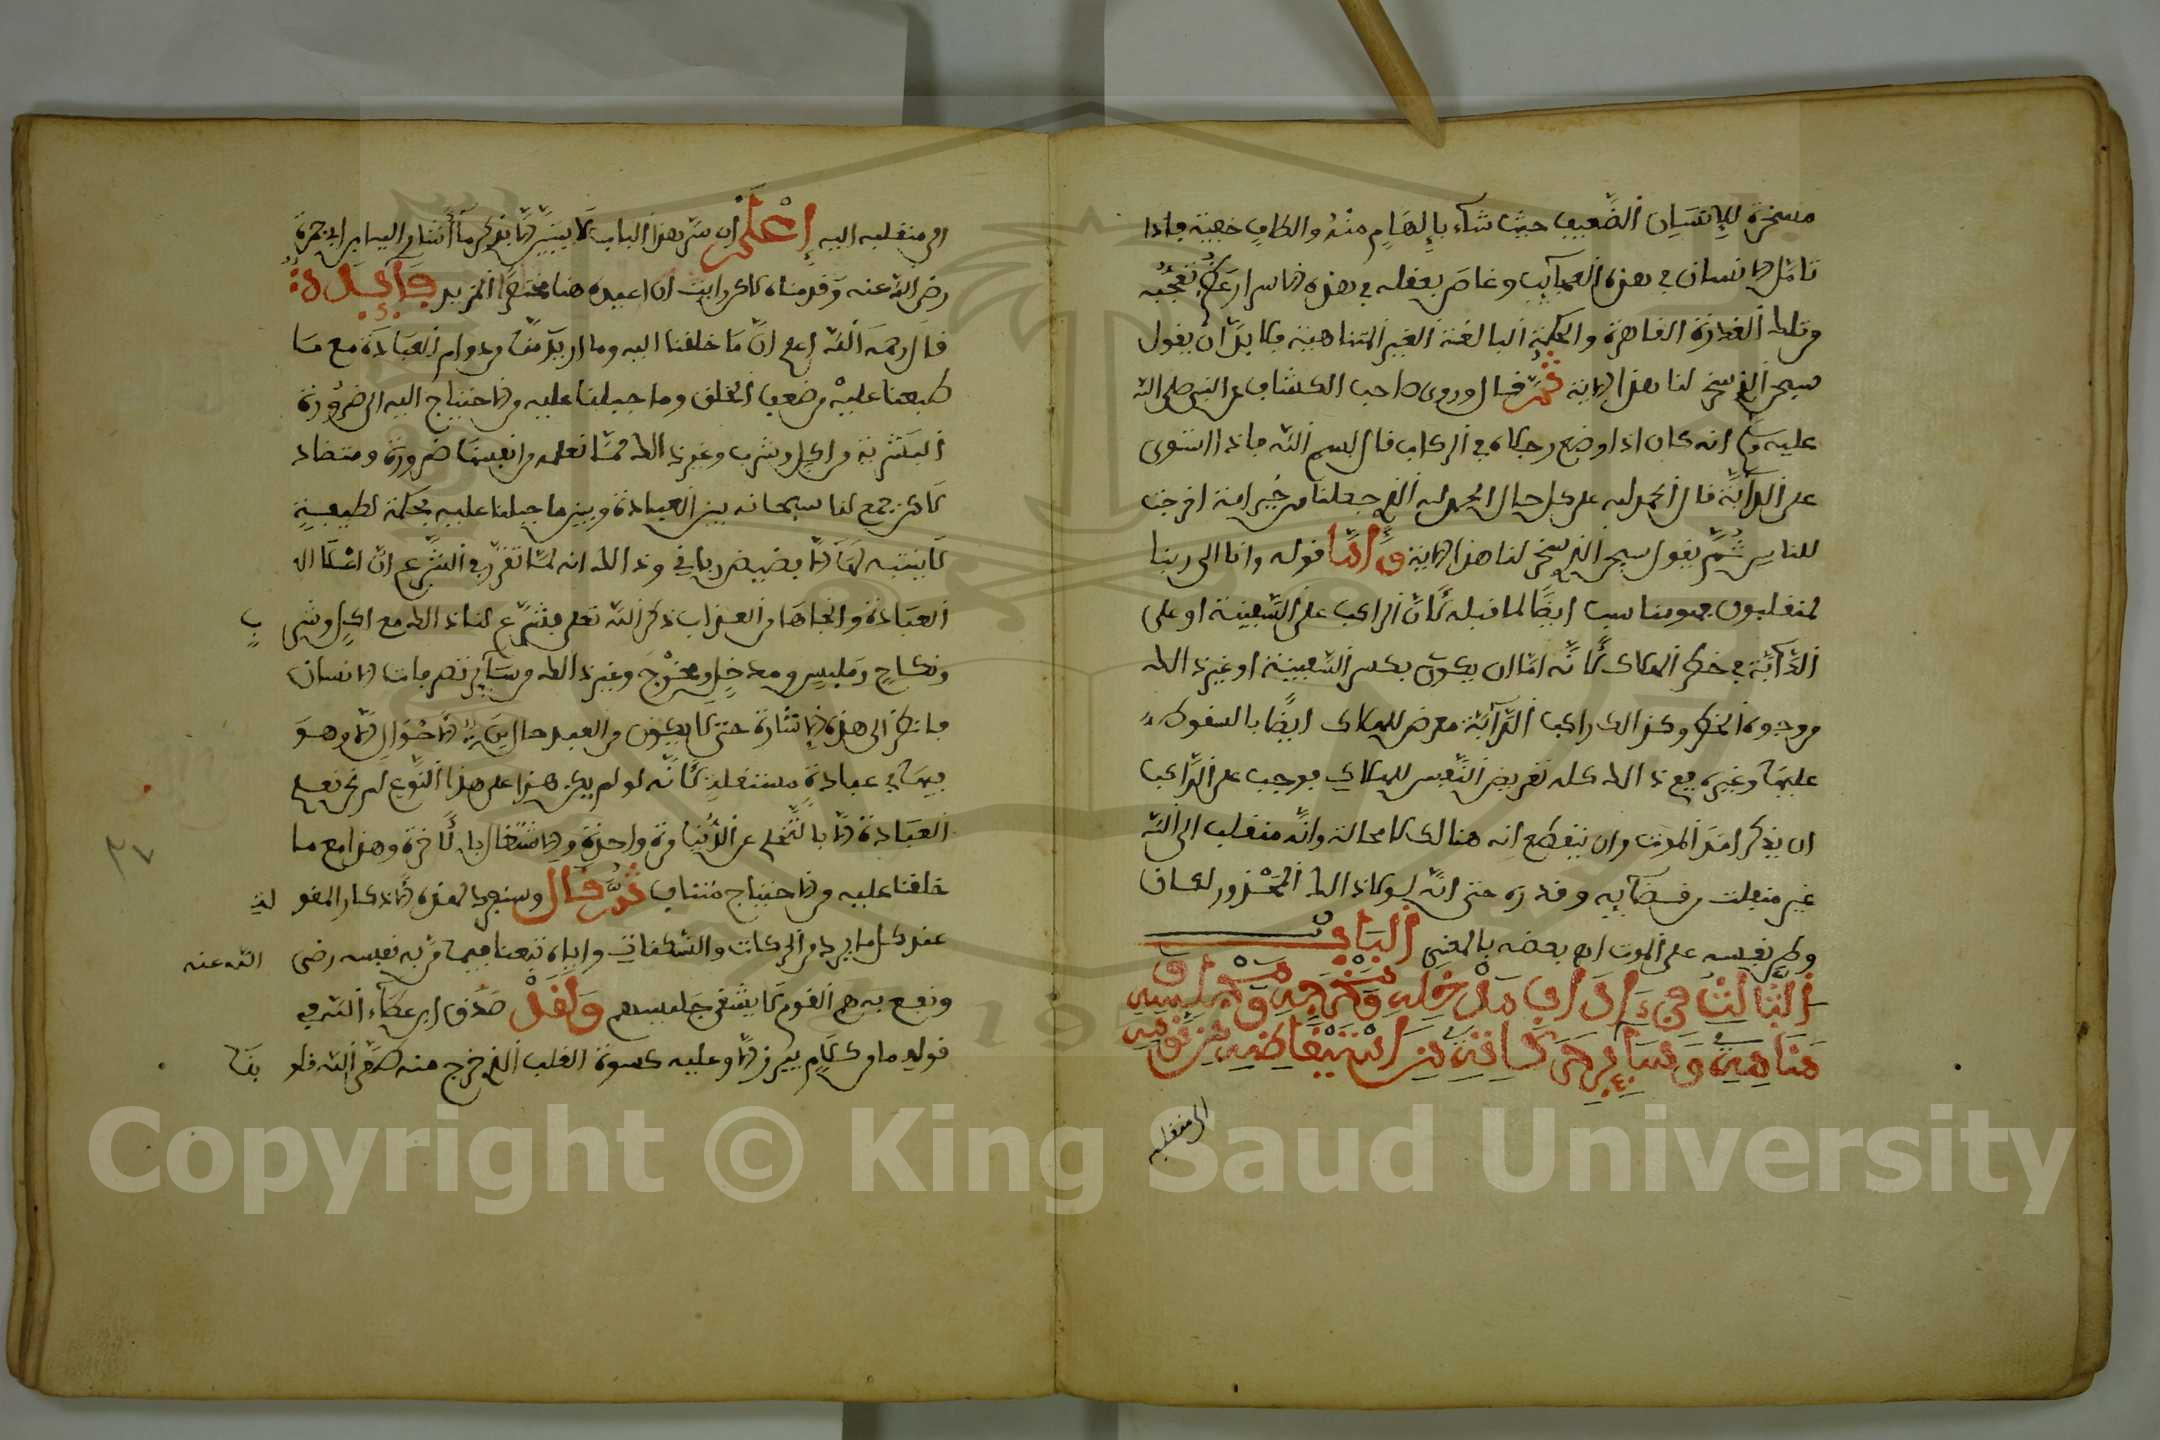 مسخرة للإنسان الضعيف حيث شاء بإلهام منه والطاف خفية فإذا
تأمل الإنسان في هذه العجائب وغاص بعقله في هذه الأسرار عظم تعجبه
من تلك القدرة القاهرة والحكمة البالغة الغير المتناهية فلا بد أن يقول
سبحن الذي سخر لنا هذا الآية ثم قال وروى صاحب الكشاف عن النبي صلى الله
عليه وسلم انه كان اذا وضع رجله في الركاب قال بسم الله فاذا استوى
على الدآبة قال الحمد لله على كل حال الحمد لله الذي جعلنا من خير امة اخرجت
للناس ثم يقول سبحن الذي سخر لنا هذا الآية وأما قوله وانا الى ربنا
لمنقلبون فهو مناسب ايضا لما قبله لأن الراكب على السفينة او على
الدآبة في خطر الهلاك لأنه اما ان يكون بكسر السفينة او غير ذلك
من وجوه الخطر وكذلك راكب الدآبة معرض للهلاك ايضا بالسقوط
عليها وغيره ففي ذلك كله تعريض النفس للهلاك فوجب على الراكب
ان يذكر امر الموت وان يتقطع انه هنالك لا محالة وانه منقلب الى الله
غير منفلت من قضايه وقدره حتى انه لو كان ذلك المحذور لكان
وطن نفسه على الموت اه بعضه بالمعنى الباب
الثالث في ءاداب مدخله ومخرجه ومواق
مناهيه وسائر حركاته من استيقاظه من نومه
الى منقلبه
الى منقلبه اليه إعلم ان سر هذا الباب لا يتبين الا بذكر ما أشار اليه ابن ابي جمرة
رضي الله عنه وقدمناه لاكن رايت ان اعيده هنا مختصرا لمزيد فايدة
قال رحمه الله اعلم ان ما خلقنا اليه وما اريد منا ودوام العبادة مع ما
طبعنا عليه من ضعف الخلق وما جبلنا عليه والاحتياج اليه الى ضرورة
البشرية من اكل وشرب وغير ذلك مما نعلمه من انفسنا ضرورة ومتضاد
لاكن جمع لنا سبحانه بين العبادة وبين ما جبلنا عليه بحكمة لطيفة
لا ينتبه لها الا بفيض رباني وذلك انه لما تقرر في الشرع ان اعلا
العبادة وانجاها من العذاب ذكر الله تعلى فشرع لنا ذلك مع اكل وشر ب
ونكاح وملبس ومدخل ومخرج وغير ذلك من سائر تصرفات الانسان
فانظر الى هذه الاشارة حتى لا يكون من العبد حال من الأحوال الا وهو
فيها في عبادة مستقلة لأنه لو لم يكن هذا على هذا النوع لم تكن نعمل
العبادة الا بالتخلي عن الدنيا مرة واحدة والاشتغال بالآخرة وهذا مع ما
خلقنا عليه من الاحتياج متناف ثم قال وسنورد لهذه الأذكار المقو لة
عند كل ما يرد من الحركات والسكنات واياه تبعنا فيما مر به نفسه رضي الله عنه
ونفع به هم القوم لا يشقى جليسهم ولقد صدق ابن عطاء الله في
قوله ما من كلام يبرز الا وعليه كسوة القلب الذي خرج منه صدق الله قلو بنا